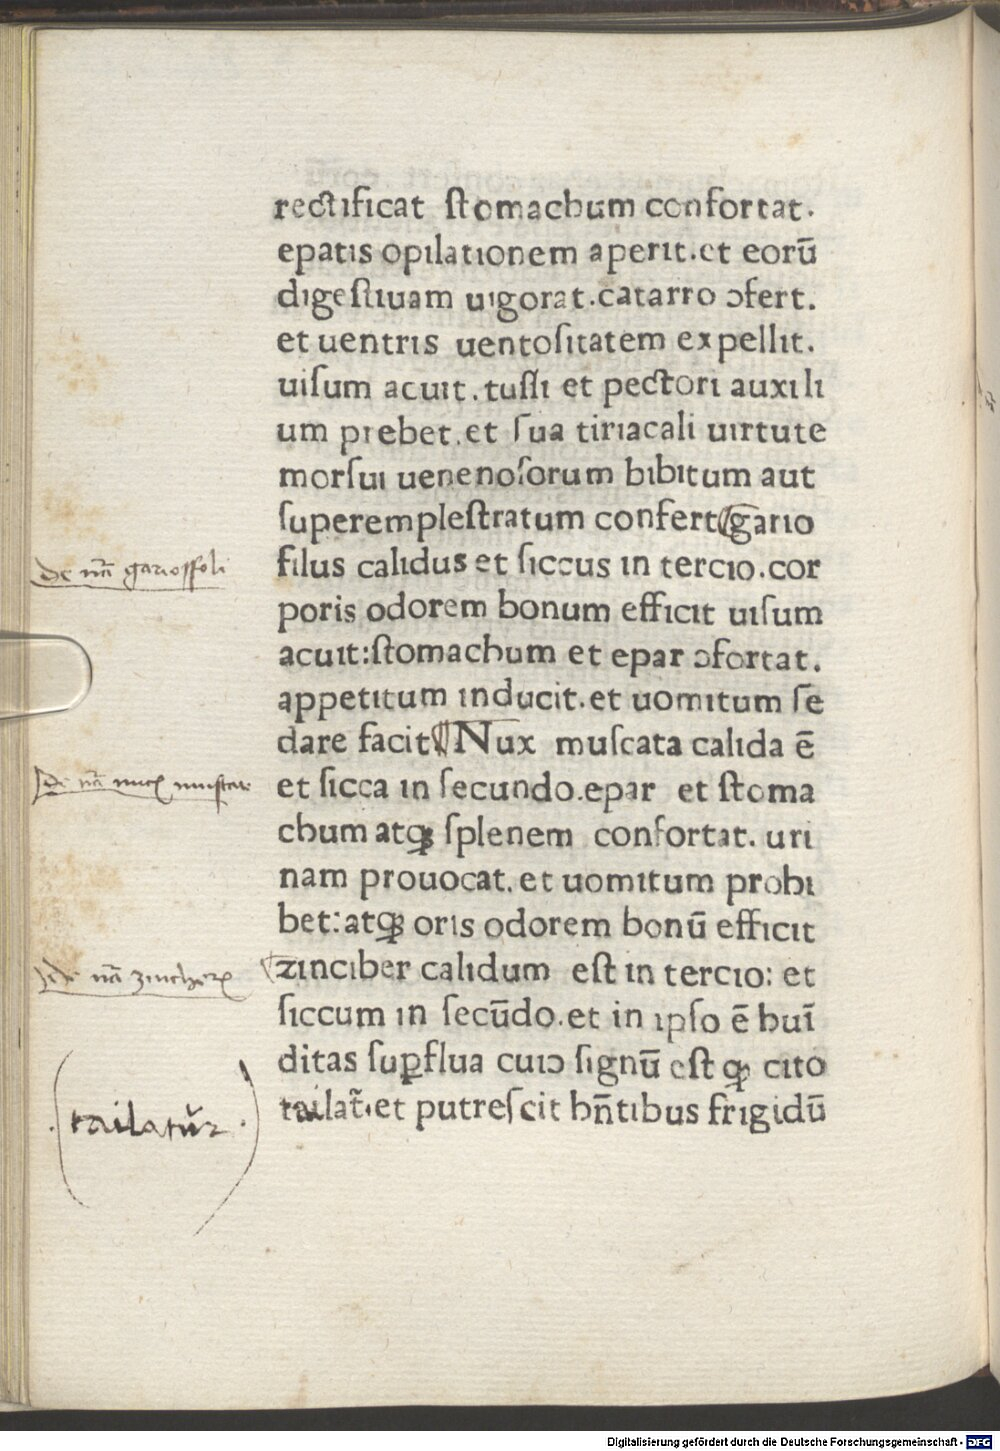 rectificat stomachum confortat.
epatis opilationem aperit.et eorū
digestiuam uigorat.catarro ↄfert.
et uentris uentositatem expellit.
uisum acuit.tussi et pectori auxili
um prebet.et sua tiriacali uirtute
morsui uenenosorum bibitum aut
superemplestratum confert ¶ gario
filus calidus et siccus in tercio.cor
poris odorem bonum efficit uisum
acuit:stomachum et epar ↄfortat.
appetitum inducit.et uomitum se
dare facit ¶ Nux muscata calida ē
et sicca in secundo.epar et stoma
chum atqꝫ splenem confortat. uri
nam prouocat.et uomitum prohi
bet:atqꝫ oris odorem bonū efficit
zinciber calidum est in tercio: et
siccum in secūdo.et in ipso ē huī
ditas suꝑflua cuiↄ signū est qꝫ cito
tailat̄.et putrescit hn̄tibus frigidū
de nā̄ gariossoli
de nā̄ nucꝭ muscate
de nā̄ zincherꝭ
tailatūr
Digitalisierung gefördert durch die Deutsche Forschungsgemeinschaft - DFG